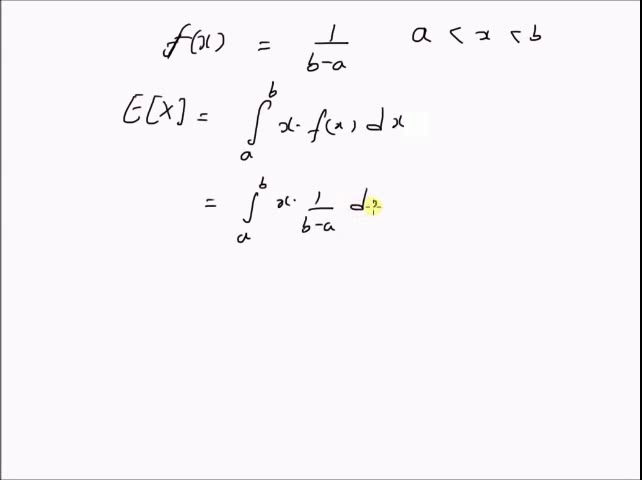 f(x) = 1/(b-a) a < x < b
E[X] = ∫_a^b x· f(x) dx
= ∫_a^b x· 1/(b-a) dx